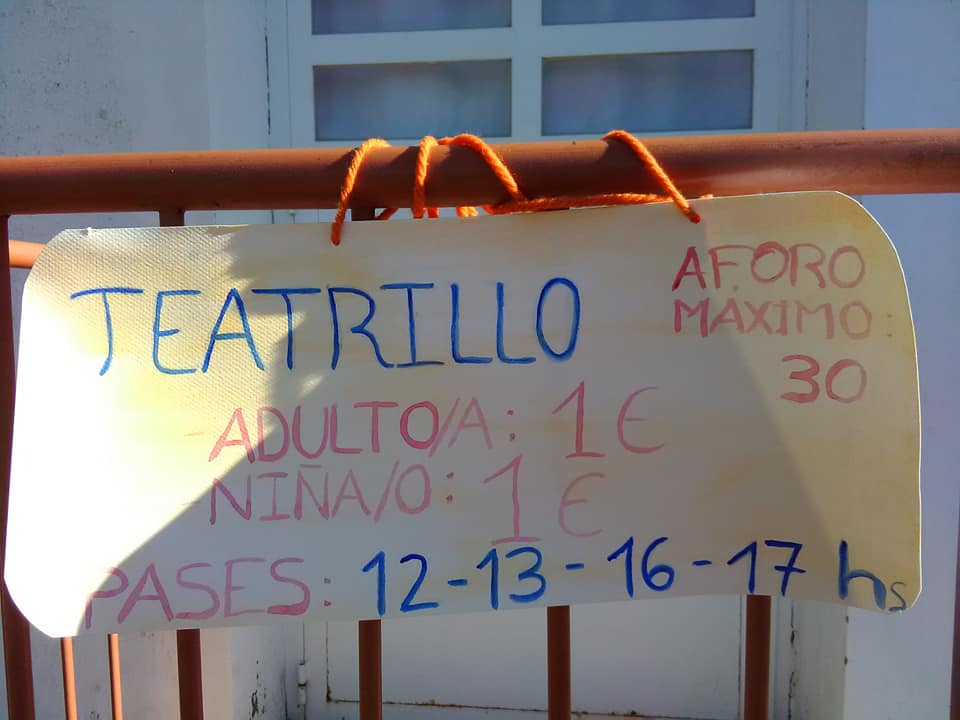 TEATRILLO
AFORO
MÁXIMO:
30
-ADULTO/A: 1€
-NIÑA/O: 1€
PASES: 12-13-16-17 hs